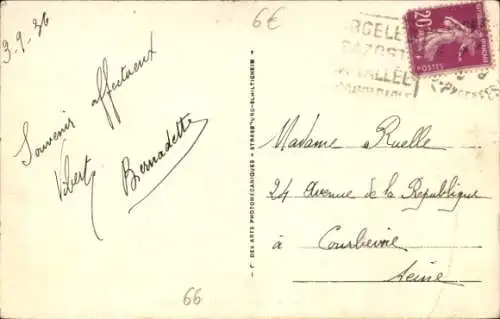 3-9-36
6€
Souvenir affectueux
Bernadette
RGELE
GAZOST
VALLEE
20c
POSTES
PYRENEES
Madame Ruelle
24 Avenue de la Republique
à Courbevoie
Seine
DES ARTS PHOTOMECANIQUES - STRASBOURG-SCHILTIGHEIM
66